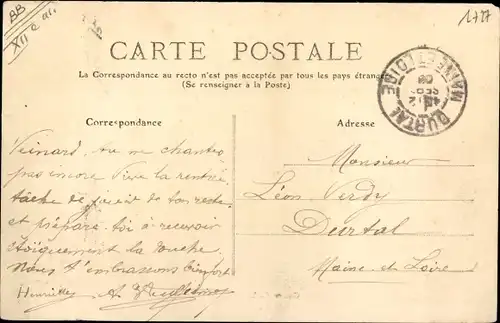 BB
XII e arr.
1727
CARTE POSTALE
La Correspondance au recto n'est pas acceptée par tous les pays étrangers
(Se renseigner à la Poste)
DURTAL
MAINE-ET-LOIRE
Correspondance
Veinard, ne me chantes
pas encore Vive la rentrée
tâche de jouir de ton reste
et prépare toi à recevoir
stoïquement la douche
Nous t'embrassons bien fort
Henriette
Adresse
Monsieur
Léon Verdy
Durtal
Maine et Loire